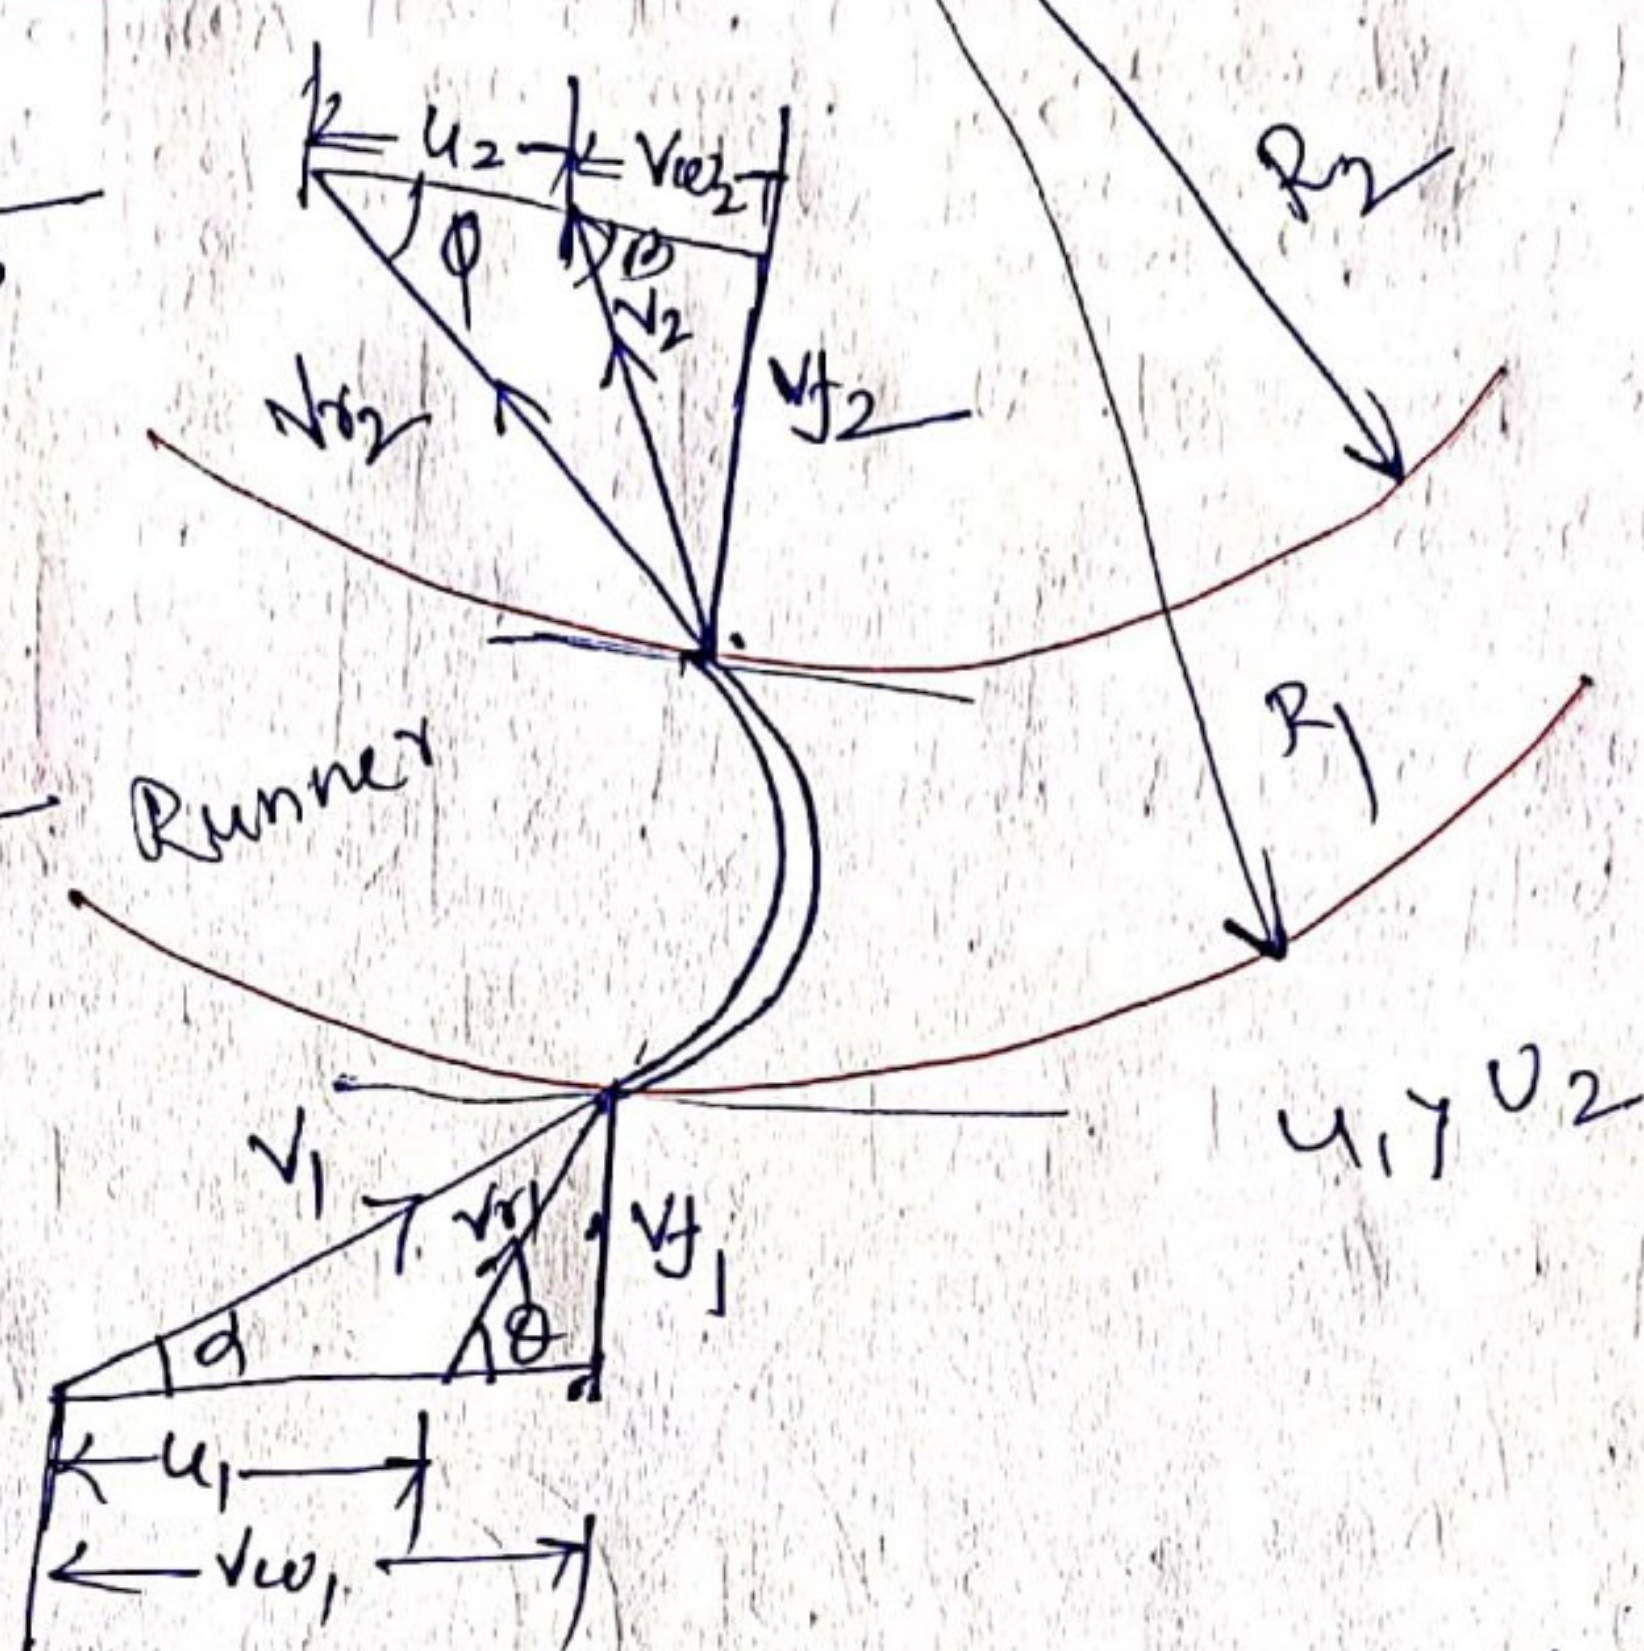 u2 Vw2
φ β
V2
Vr2 Vf2
R2
R1
Runner
u1 > u2
V1
Vr1 Vf1
α θ
u1
Vw1